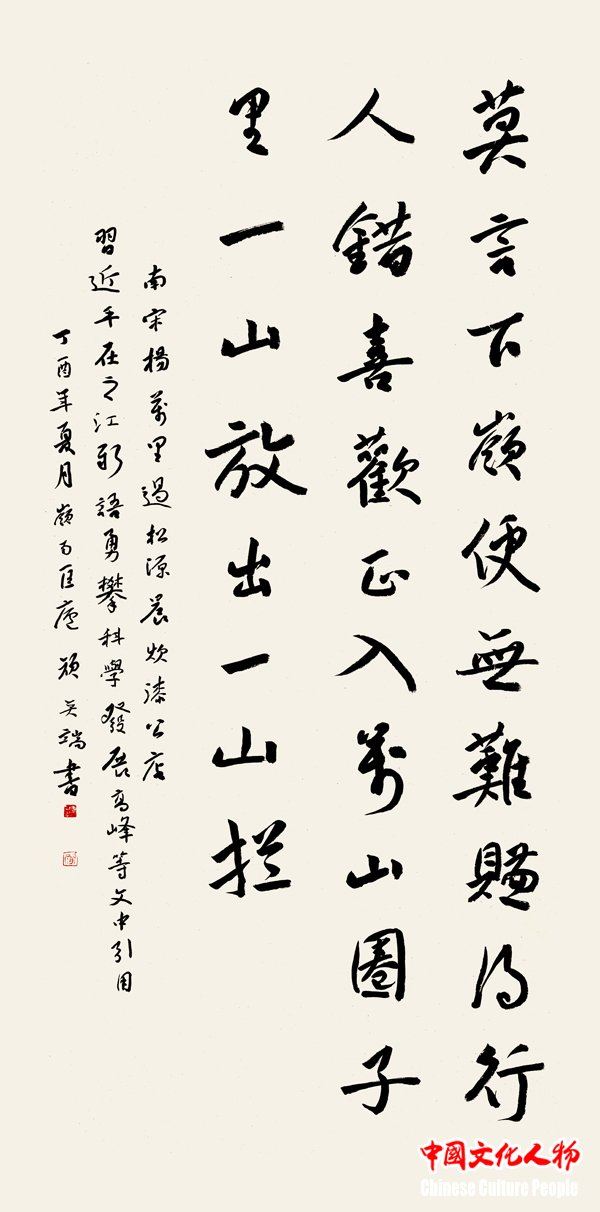 莫言下嶺便無難賺得行
人錯喜歡正入萬山圈子
里一山放出一山拦
南宋楊萬里過松源晨炊漆公店
習近平在之江新語勇攀科學發展高峰等文中引用
丁酉年夏月嶺南匡廬端書
中國文化人物
Chinese Culture People